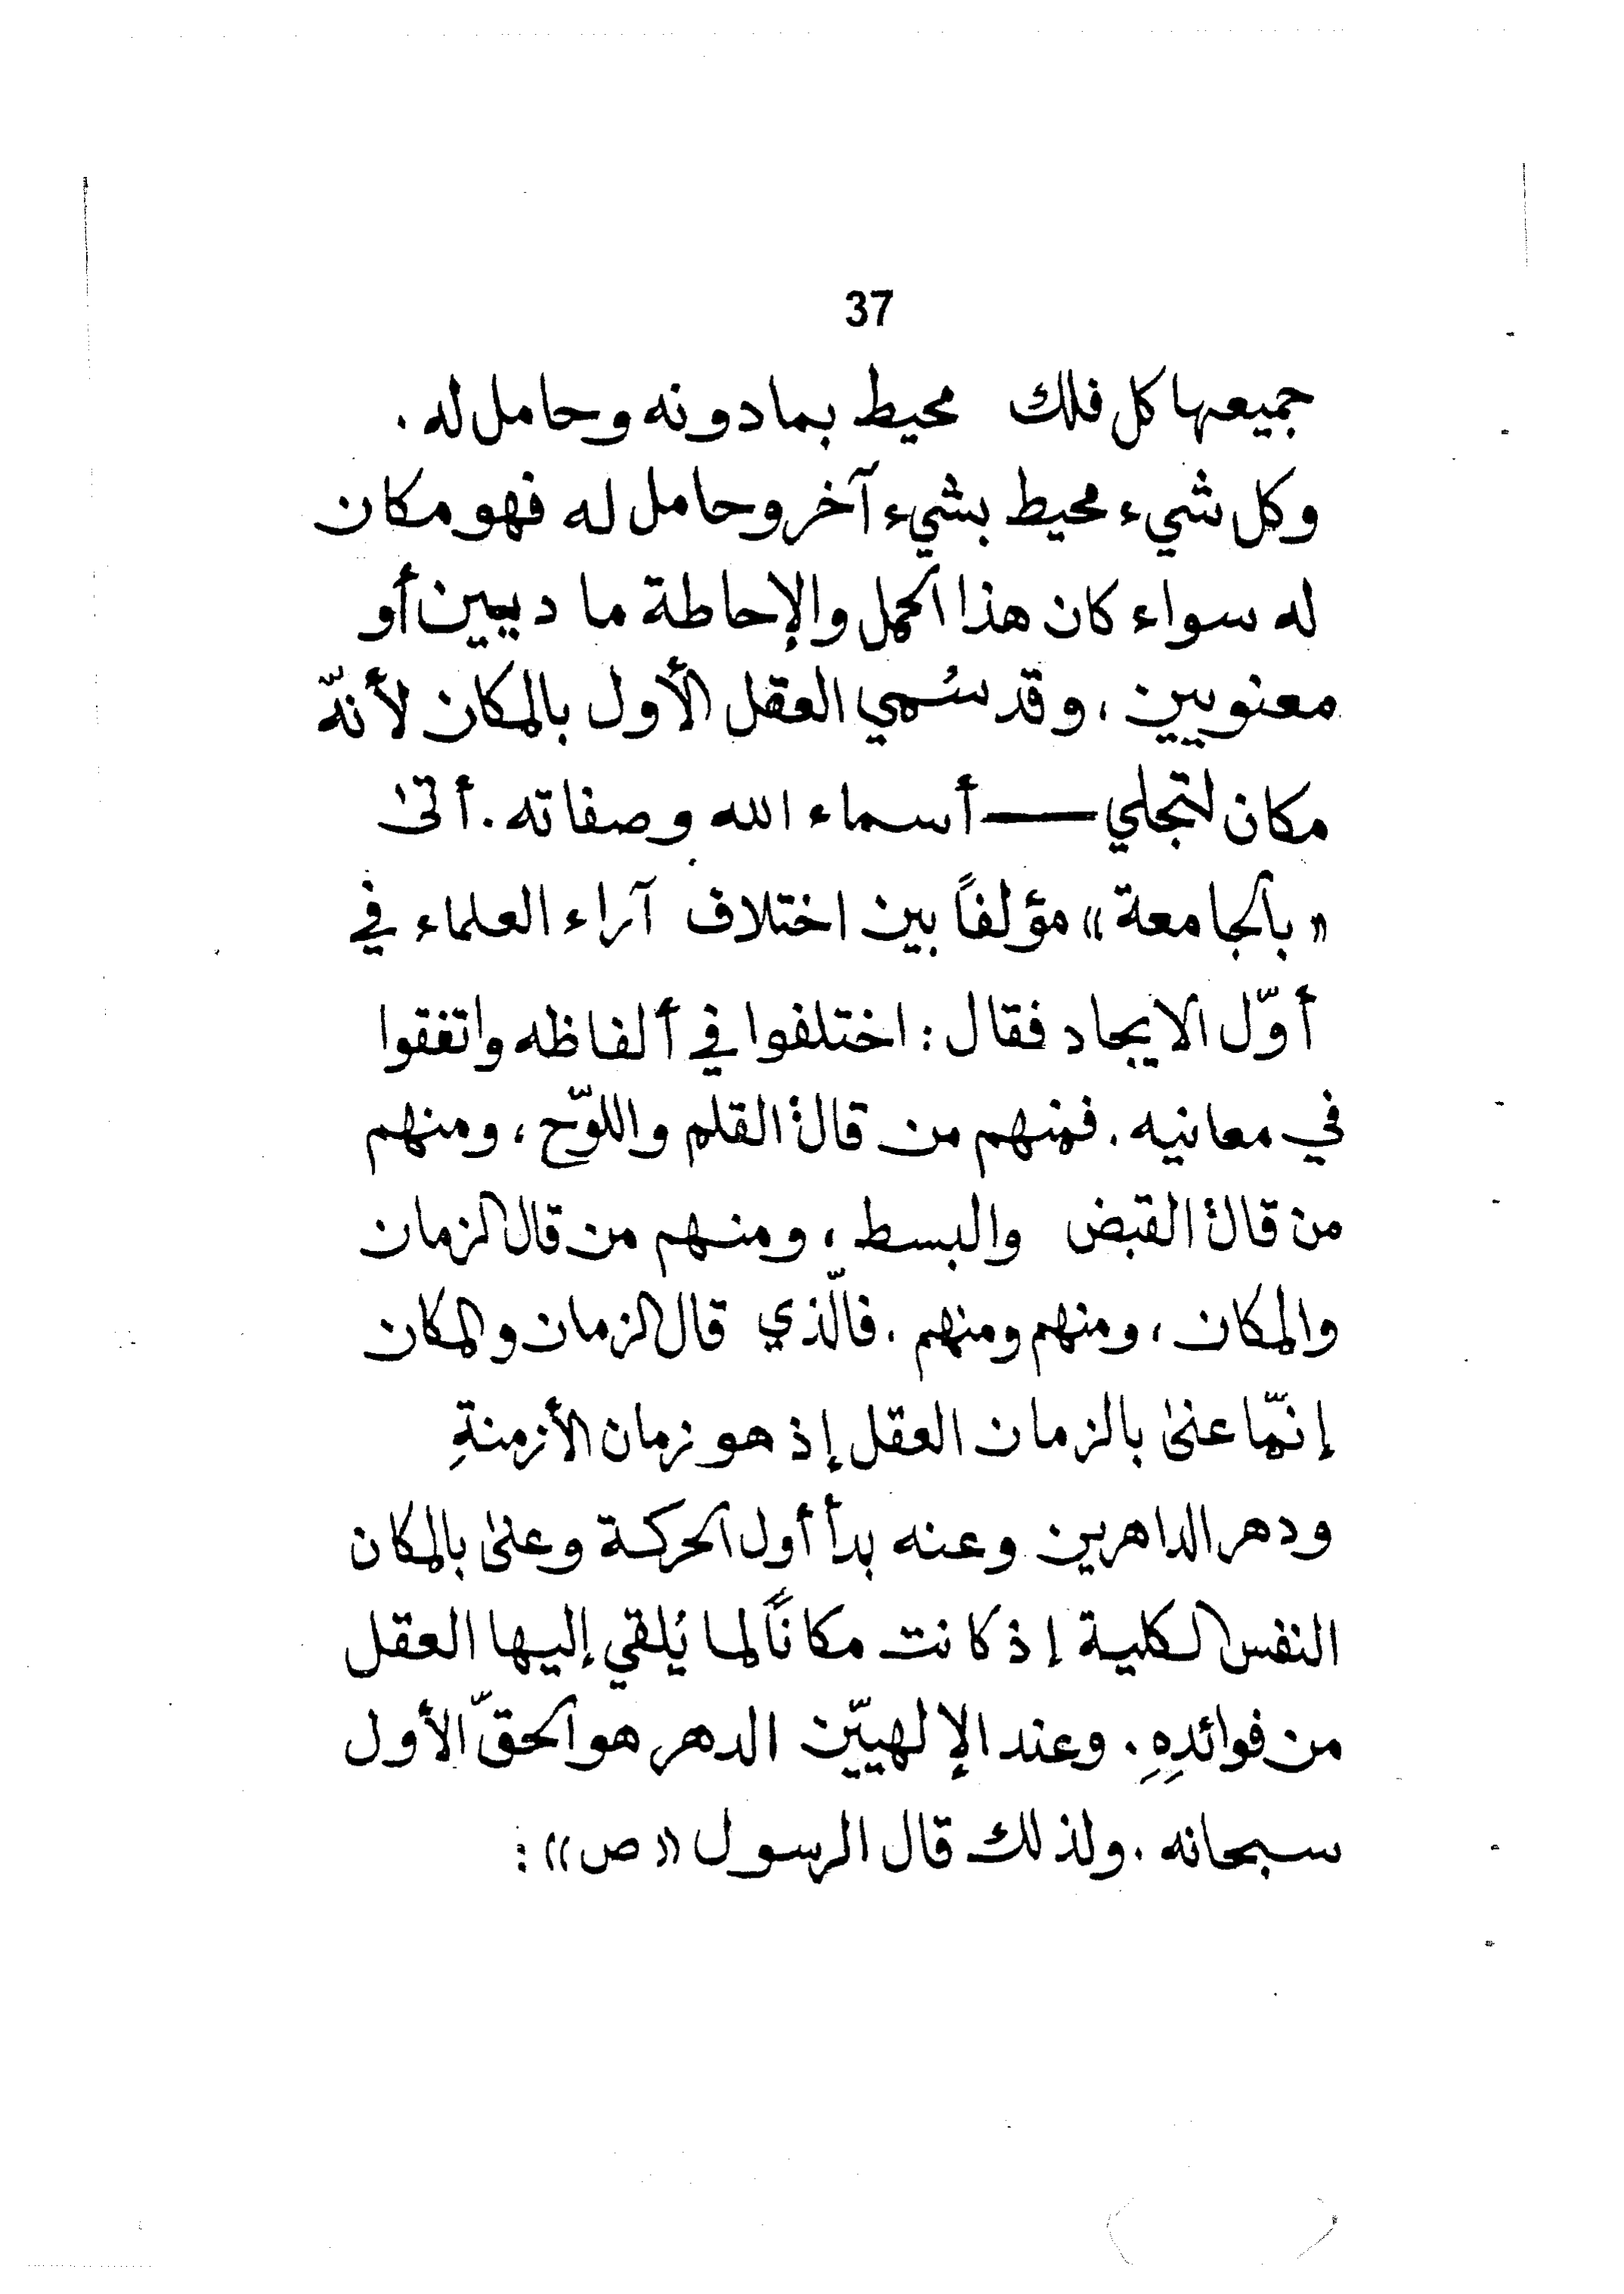 37
جميعها كل فلك محيط بما دونه وحامل له .
وكل شيء محيط بشيء آخر وحامل له فهو مكان
له سواء كان هذا الحمل والإحاطة ماديين أو
معنويين ، وقد سُمي العقل الأول بالمكان لأنّه
مكان لتجلي — أسماء الله وصفاته . أتى
« بالجامعة » مؤلفاً بين اختلاف آراء العلماء في
أوّل الايجاد فقال : اختلفوا في ألفاظه واتفقوا
في معانيه . فمنهم من قال: القلم واللوّح ، ومنهم
من قال: القبض والبسط ، ومنهم من قال الزمان
والمكان ، ومنهم ومنهم . فالّذي قال الزمان والمكان
إنّما عنى بالزمان العقل إذ هو زمان الأزمنةِ
ودهر الداهرين وعنه بدأ أول الحركة وعنى بالمكان
النفس الكلية إذ كانت مكاناً لما يُلقي إليها العقل
من فوائدِهِ . وعند الإلهييّن الدهر هو الحقّ الأول
سبحانه . ولذلك قال الرسول « ص » :